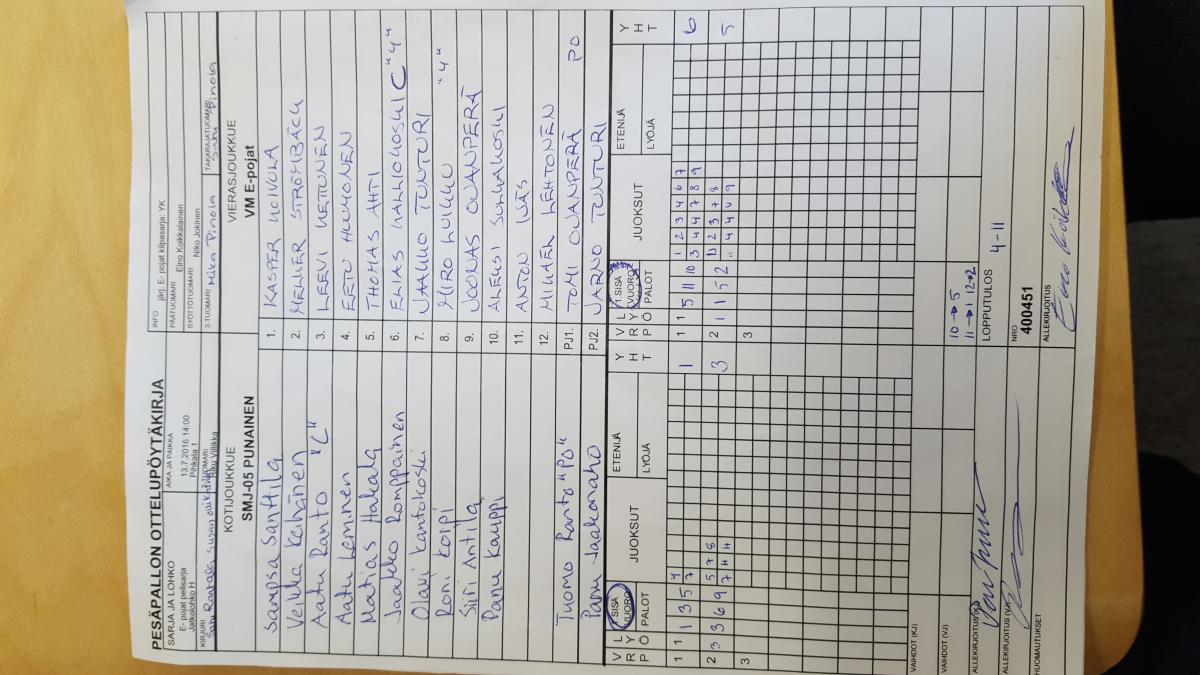 PESÄPALLON OTTELUPÖYTÄKIRJA
SARJA JA LOHKO
E- pojat pelisarja
Jatkolohko H
AIKA JA PAIKKA
13.7.2016 14:00
Pihkala 1
INFO järj. E- pojat kilpasarja: YK
PÄÄTUOMARI Eino Koikkalainen
SYÖTTÖTUOMARI Niko Jokinen
KIRJURI
2-TUOMARI
Riku Villikka
3-TUOMARI Mika Pinola
TAKARAJATUOMARI
Satu Pinola
KOTIJOUKKUE
SMJ-05 PUNAINEN
VIERASJOUKKUE
VM E-pojat
Sampsa Santtila 1. KASPER KOIVULA
Veikka Keihänen 2.
Aatu Ranto "C" 3. LEEVI KETONEN
Aatu Leminen 4. EETU HUMONEN
Matias Hakala 5. THOMAS AHTI
Jaakko Romppainen 6. ELIAS KALLIOKOSKI C "4"
Olavi Kantokoski 7. JAAKKO TUNTURI
Roni Korpi 8. MIRO LUKKU "4"
Siiri Antila 9. JOONAS OJANPERÄ
Panu Kauppi 10. ALEKSI
11. ANTON
12. MIKAEL LEHTONEN
Tuomo Ranto "PO" PJ1. TOMI OJANPERÄ PO
Panu Jaakonaho PJ2. JARNO TUNTURI
V R P L Y Ö 1 SISÄ VUORO 2 PALOT JUOKSUT ETENIJÄ LYÖJÄ Y H T
V R P L Y Ö 1 SISÄ VUORO 2 PALOT JUOKSUT ETENIJÄ LYÖJÄ Y H T
1 1 1 3 5 4 1
7
1 1 5 11 10 1 2 3 4 6 7 6
3 4 4 7 8 9
2 3 3 6 9 5 7 8 3
7 H H
2 1 1 5 2 2 3 7 8 5
4 4 9
3
3
VAIHDOT (KJ)
10 → 5
11 → 1 12 → 2
VAIHDOT (VJ)
LOPPUTULOS 4-11
ALLEKIRJOITUS (KJ)
ALLEKIRJOITUS (VJ)
NRO
400451
HUOMAUTUKSET
ALLEKIRJOITUS